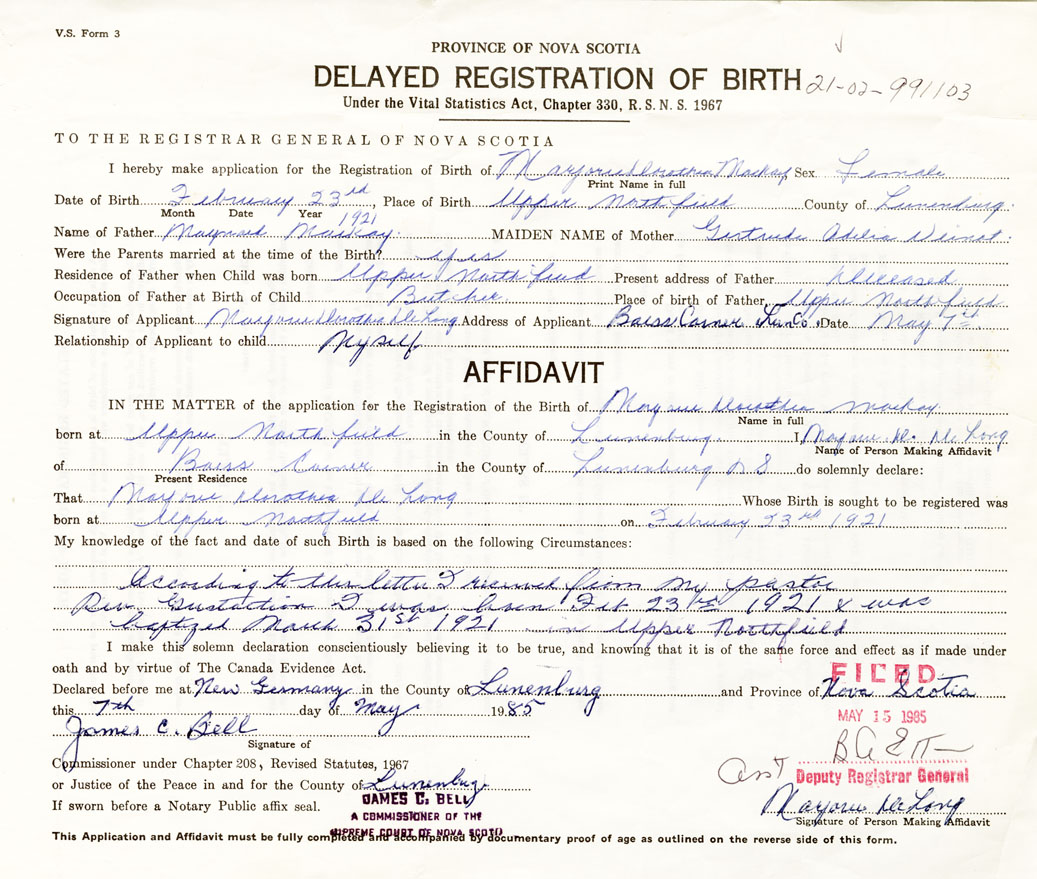 V.S. Form 3
PROVINCE OF NOVA SCOTIA
DELAYED REGISTRATION OF BIRTH 21-02-991103
Under the Vital Statistics Act, Chapter 330, R.S.N.S. 1967
TO THE REGISTRAR GENERAL OF NOVA SCOTIA
I hereby make application for the Registration of Birth of Marjorie Dorothea Mackay Sex Female
Print Name in full
Date of Birth February 23rd, Place of Birth Upper Northfield County of Lunenburg
Month Date Year 1921
Name of Father Maynard Mackay MAIDEN NAME of Mother Gertrude Adelia
Were the Parents married at the time of the Birth? yes
Residence of Father when Child was born Upper Northfield Present address of Father Deceased
Occupation of Father at Birth of Child Butcher Place of birth of Father Upper Northfield
Signature of Applicant Marjorie Dorothea De Long Address of Applicant Barss Corner Lun Co. Date May 7th
Relationship of Applicant to child Myself
AFFIDAVIT
IN THE MATTER of the application for the Registration of the Birth of Marjorie Dorothea Mackay
Name in full
born at Upper Northfield in the County of Lunenburg I, Marjorie D. De Long
Name of Person Making Affidavit
of Barss Corner in the County of Lunenburg N S do solemnly declare:
Present Residence
That Marjorie Dorothea De Long Whose Birth is sought to be registered was
born at Upper Northfield on February 23rd 1921
My knowledge of the fact and date of such Birth is based on the following Circumstances:
According to the letter I received from my pastor
Rev. I was born Feb 23rd 1921 & was
baptized March 31st 1921 in Upper Northfield
I make this solemn declaration conscientiously believing it to be true, and knowing that it is of the same force and effect as if made under
oath and by virtue of The Canada Evidence Act.
FILED
Declared before me at New Germany in the County of Lunenburg and Province of Nova Scotia
this 7th day of May 1985
MAY 15 1985
James C. Bell
Signature of
Commissioner under Chapter 208, Revised Statutes, 1967
Asst Deputy Registrar General
or Justice of the Peace in and for the County of Lunenburg
JAMES C. BELL
Marjorie De Long
If sworn before a Notary Public affix seal.
A COMMISSIONER OF THE
Signature of Person Making Affidavit
SUPREME COURT OF NOVA SCOTIA
This Application and Affidavit must be fully completed and accompanied by documentary proof of age as outlined on the reverse side of this form.